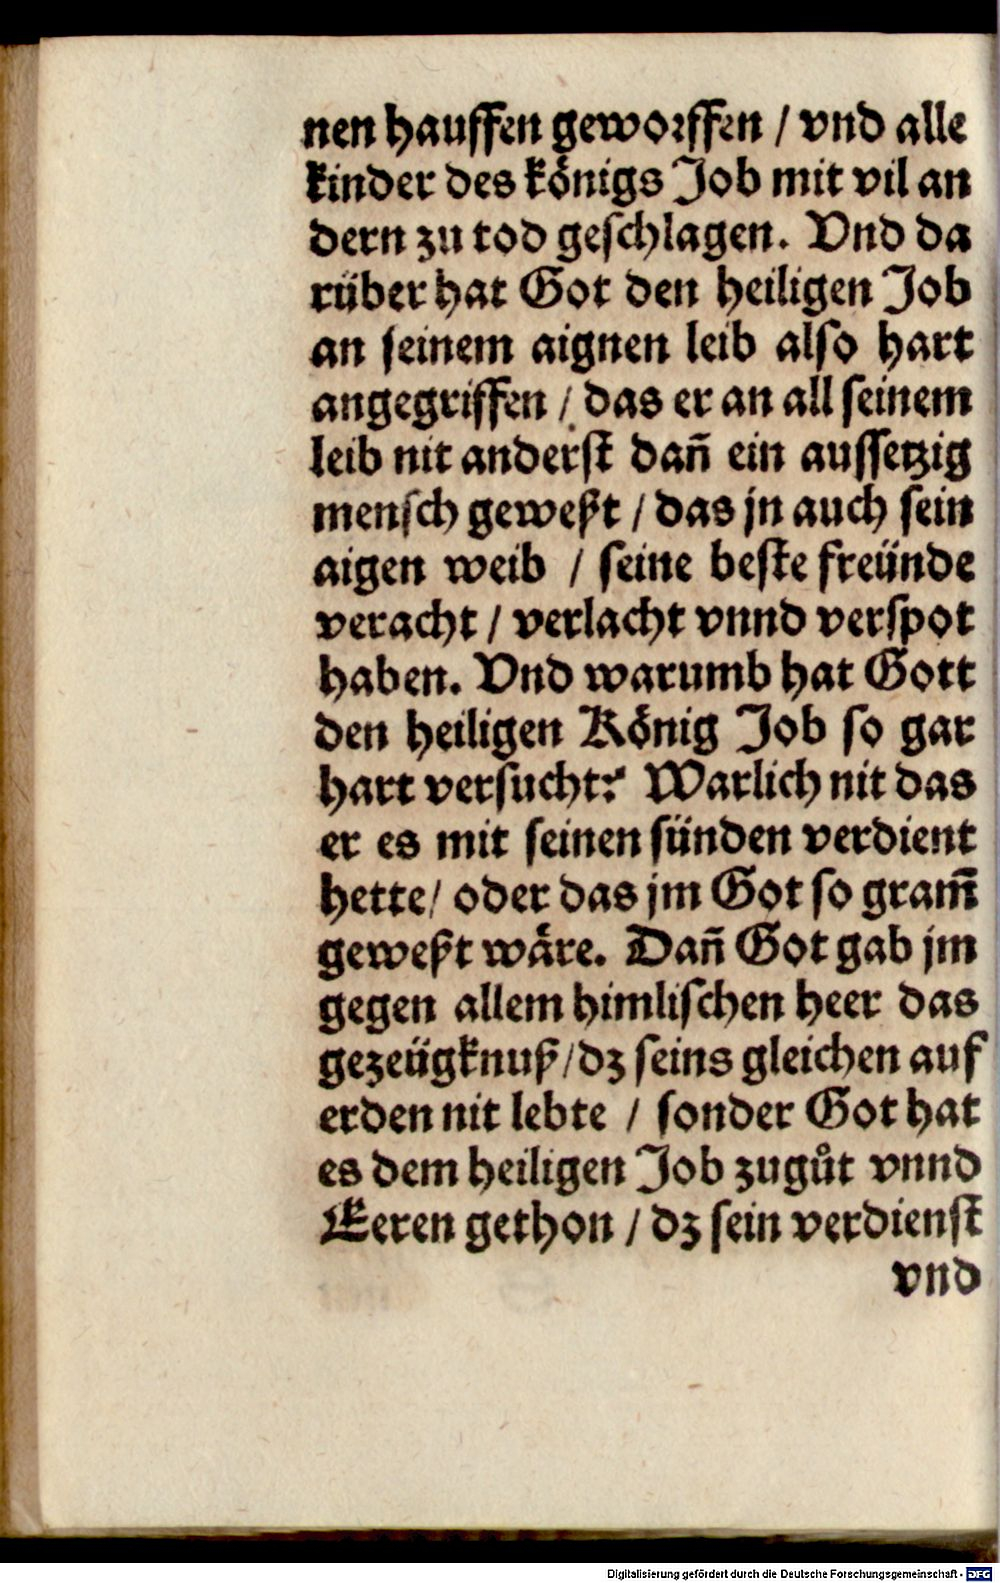 nen hauffen geworffen / vnd alle
kinder des königs Job mit vil an
dern zu tod geschlagen. Vnd da
rüber hat Got den heiligen Job
an seinem aignen leib also hart
angegriffen / das er an all seinem
leib nit anderst dañ ein aussetzig
mensch geweßt / das jn auch sein
aigen weib / seine beste freünde
veracht / verlacht vnnd verspot
haben. Vnd warumb hat Gott
den heiligen König Job so gar
hart versucht? Warlich nit das
er es mit seinen sünden verdient
hette / oder das jm Got so gram̃
geweßt wåre. Dañ Got gab jm
gegen allem himlischen heer das
gezeügknuß / dz seins gleichen auf
erden nit lebte / sonder Got hat
es dem heiligen Job zugůt vnnd
Eeren gethon / dz sein verdienst
vnd
Digitalisierung gefördert durch die Deutsche Forschungsgemeinschaft - DFG